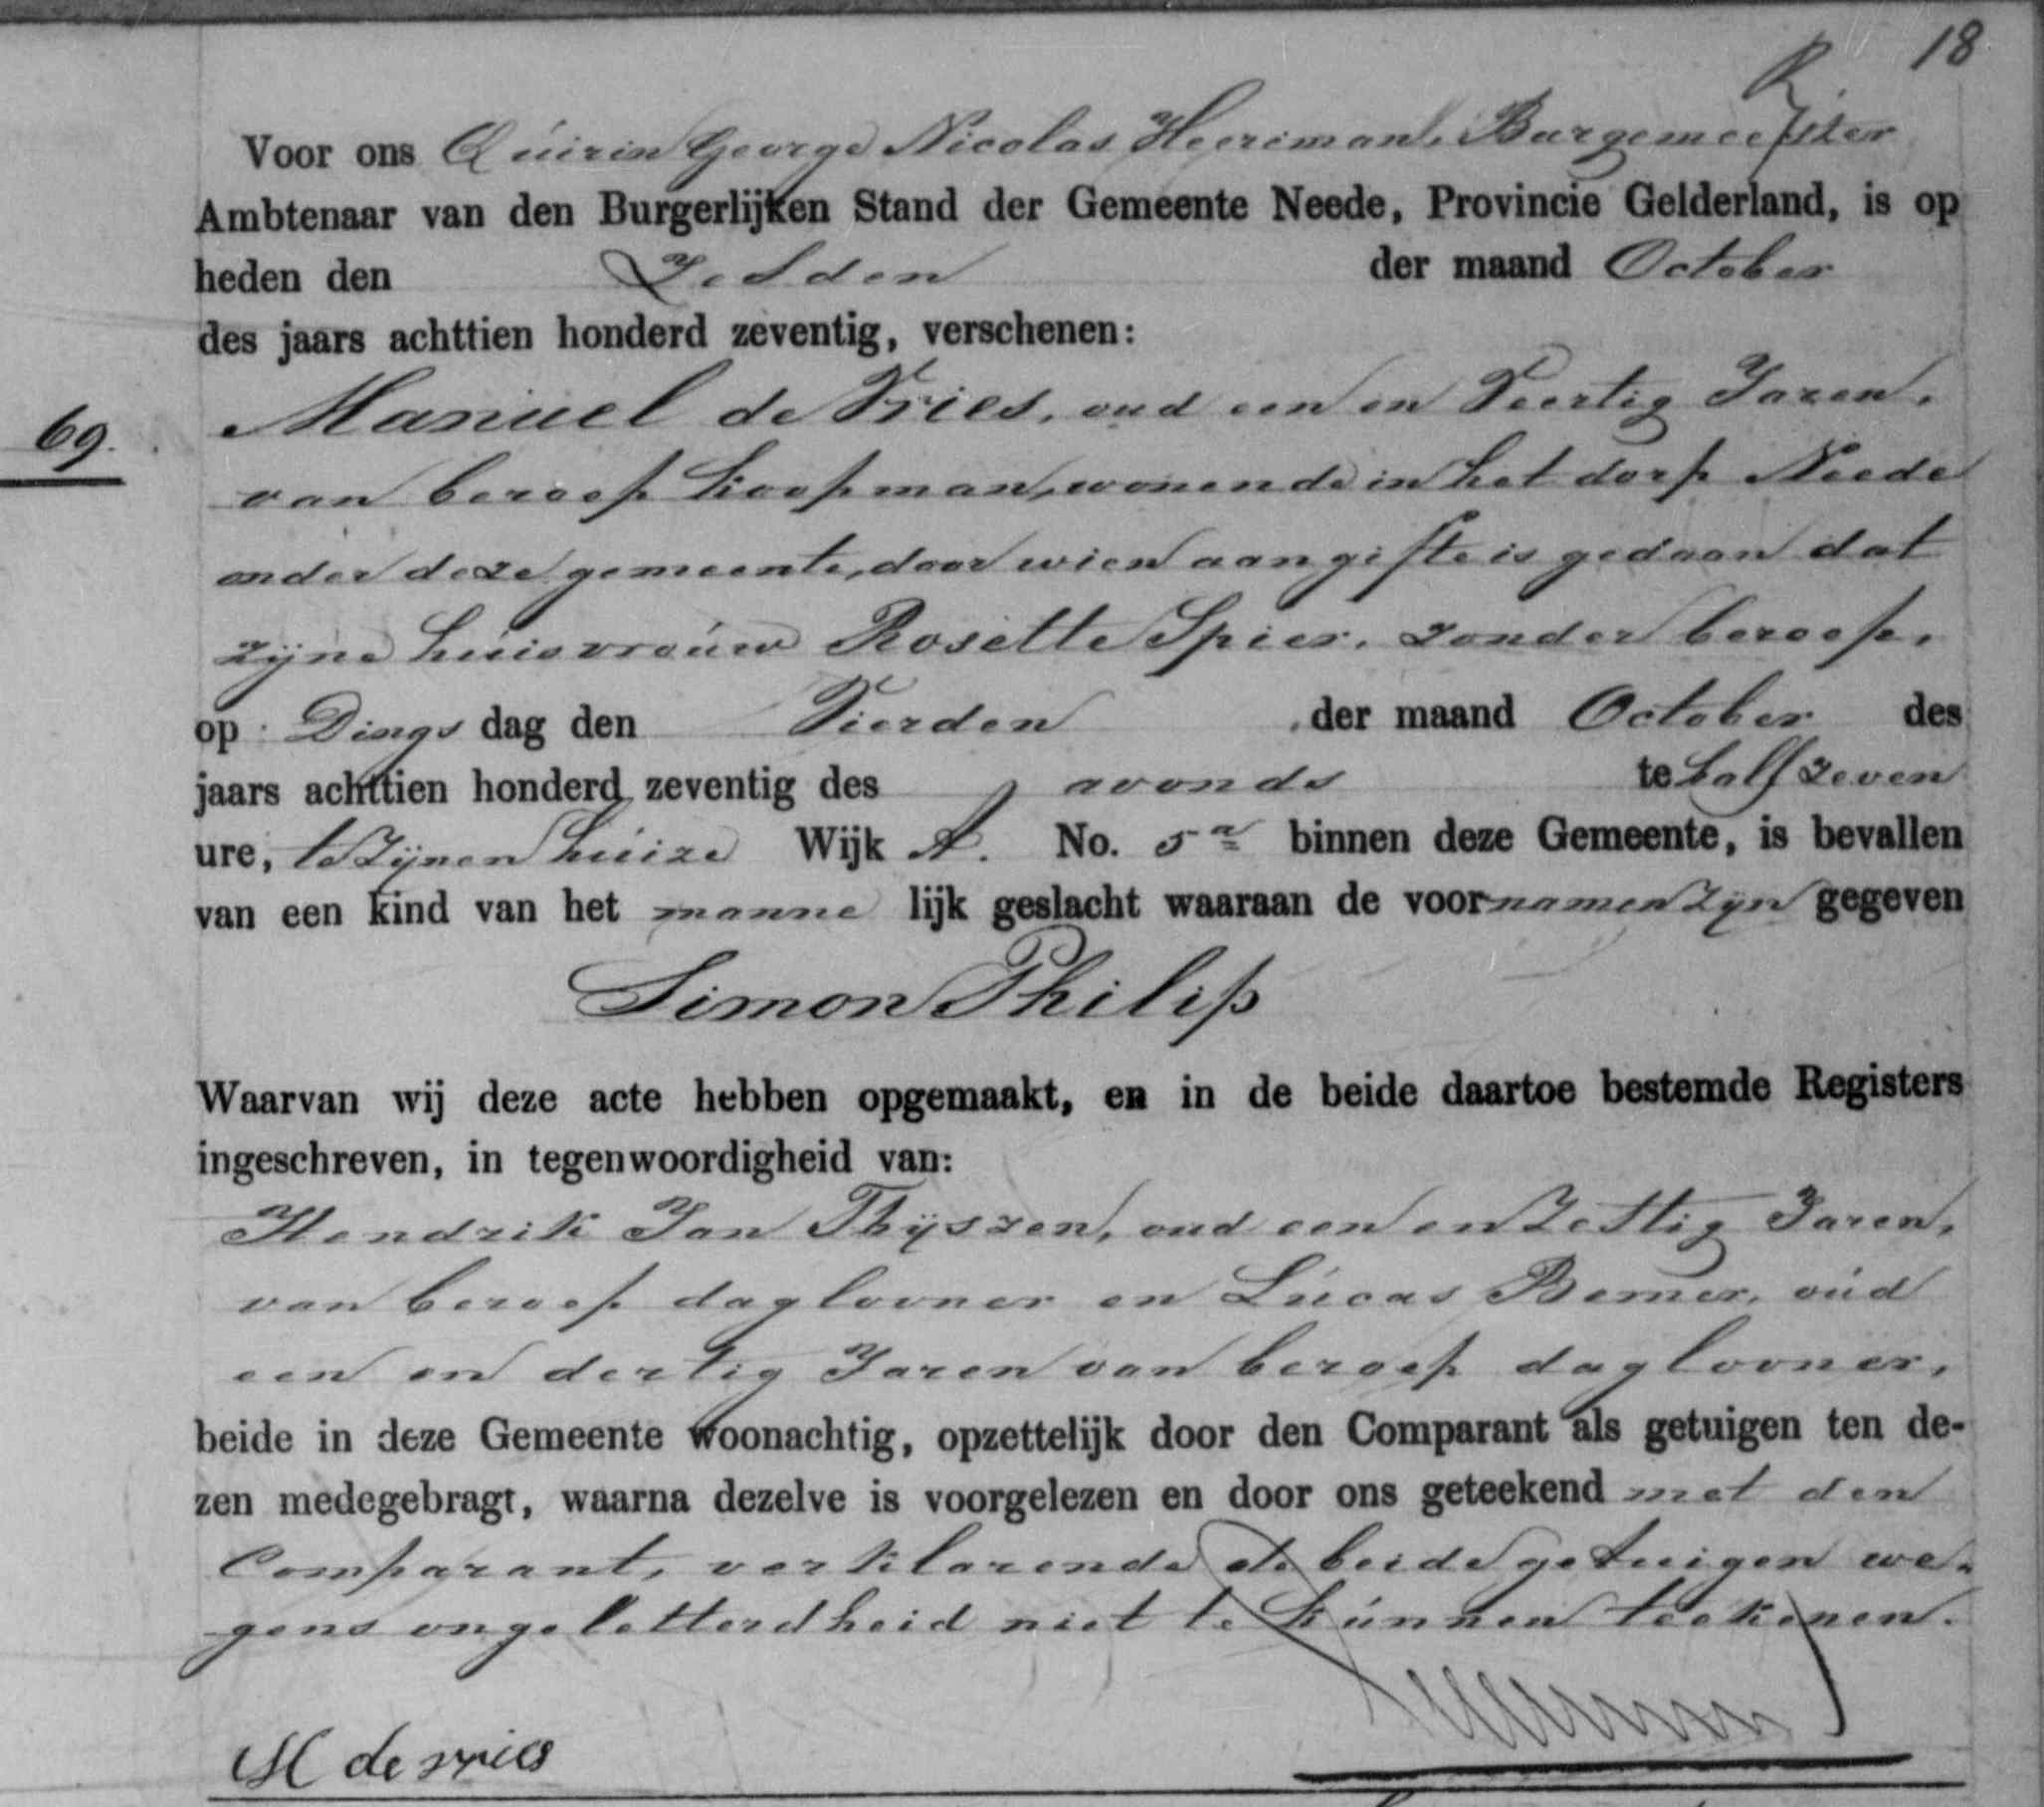 R. 18
Voor ons Quirin George Nicolas Heeriman, Burgemeester
Ambtenaar van den Burgerlijken Stand der Gemeente Neede, Provincie Gelderland, is op
heden den Zesden der maand October
des jaars achttien honderd zeventig, verschenen:
69. Manuel de Vries, oud een en Veertig Jaren,
van beroep koopman, wonende in het dorp Neede
onder deze gemeente, door wien aangifte is gedaan dat
zijne huisvrouw Rosette Spier, zonder beroep,
op Dings dag den Vierden der maand October des
jaars achttien honderd zeventig des avonds te half zeven
ure, te zijnen huize Wijk A. No. 5a binnen deze Gemeente, is bevallen
van een kind van het manne lijk geslacht waaraan de voornamen zijn gegeven
Simon Philip
Waarvan wij deze acte hebben opgemaakt, en in de beide daartoe bestemde Registers
ingeschreven, in tegenwoordigheid van:
Hendrik Jan Thijszen, oud een en Zestig Jaren,
van beroep daglooner en Lucas Bemer, oud
een en dertig Jaren van beroep daglooner,
beide in deze Gemeente woonachtig, opzettelijk door den Comparant als getuigen ten de-
zen medegebragt, waarna dezelve is voorgelezen en door ons geteekend met den
Comparant, verklarende de beide getuigen we-
gens ongeletterdheid niet te kunnen teekenen.
M de vries